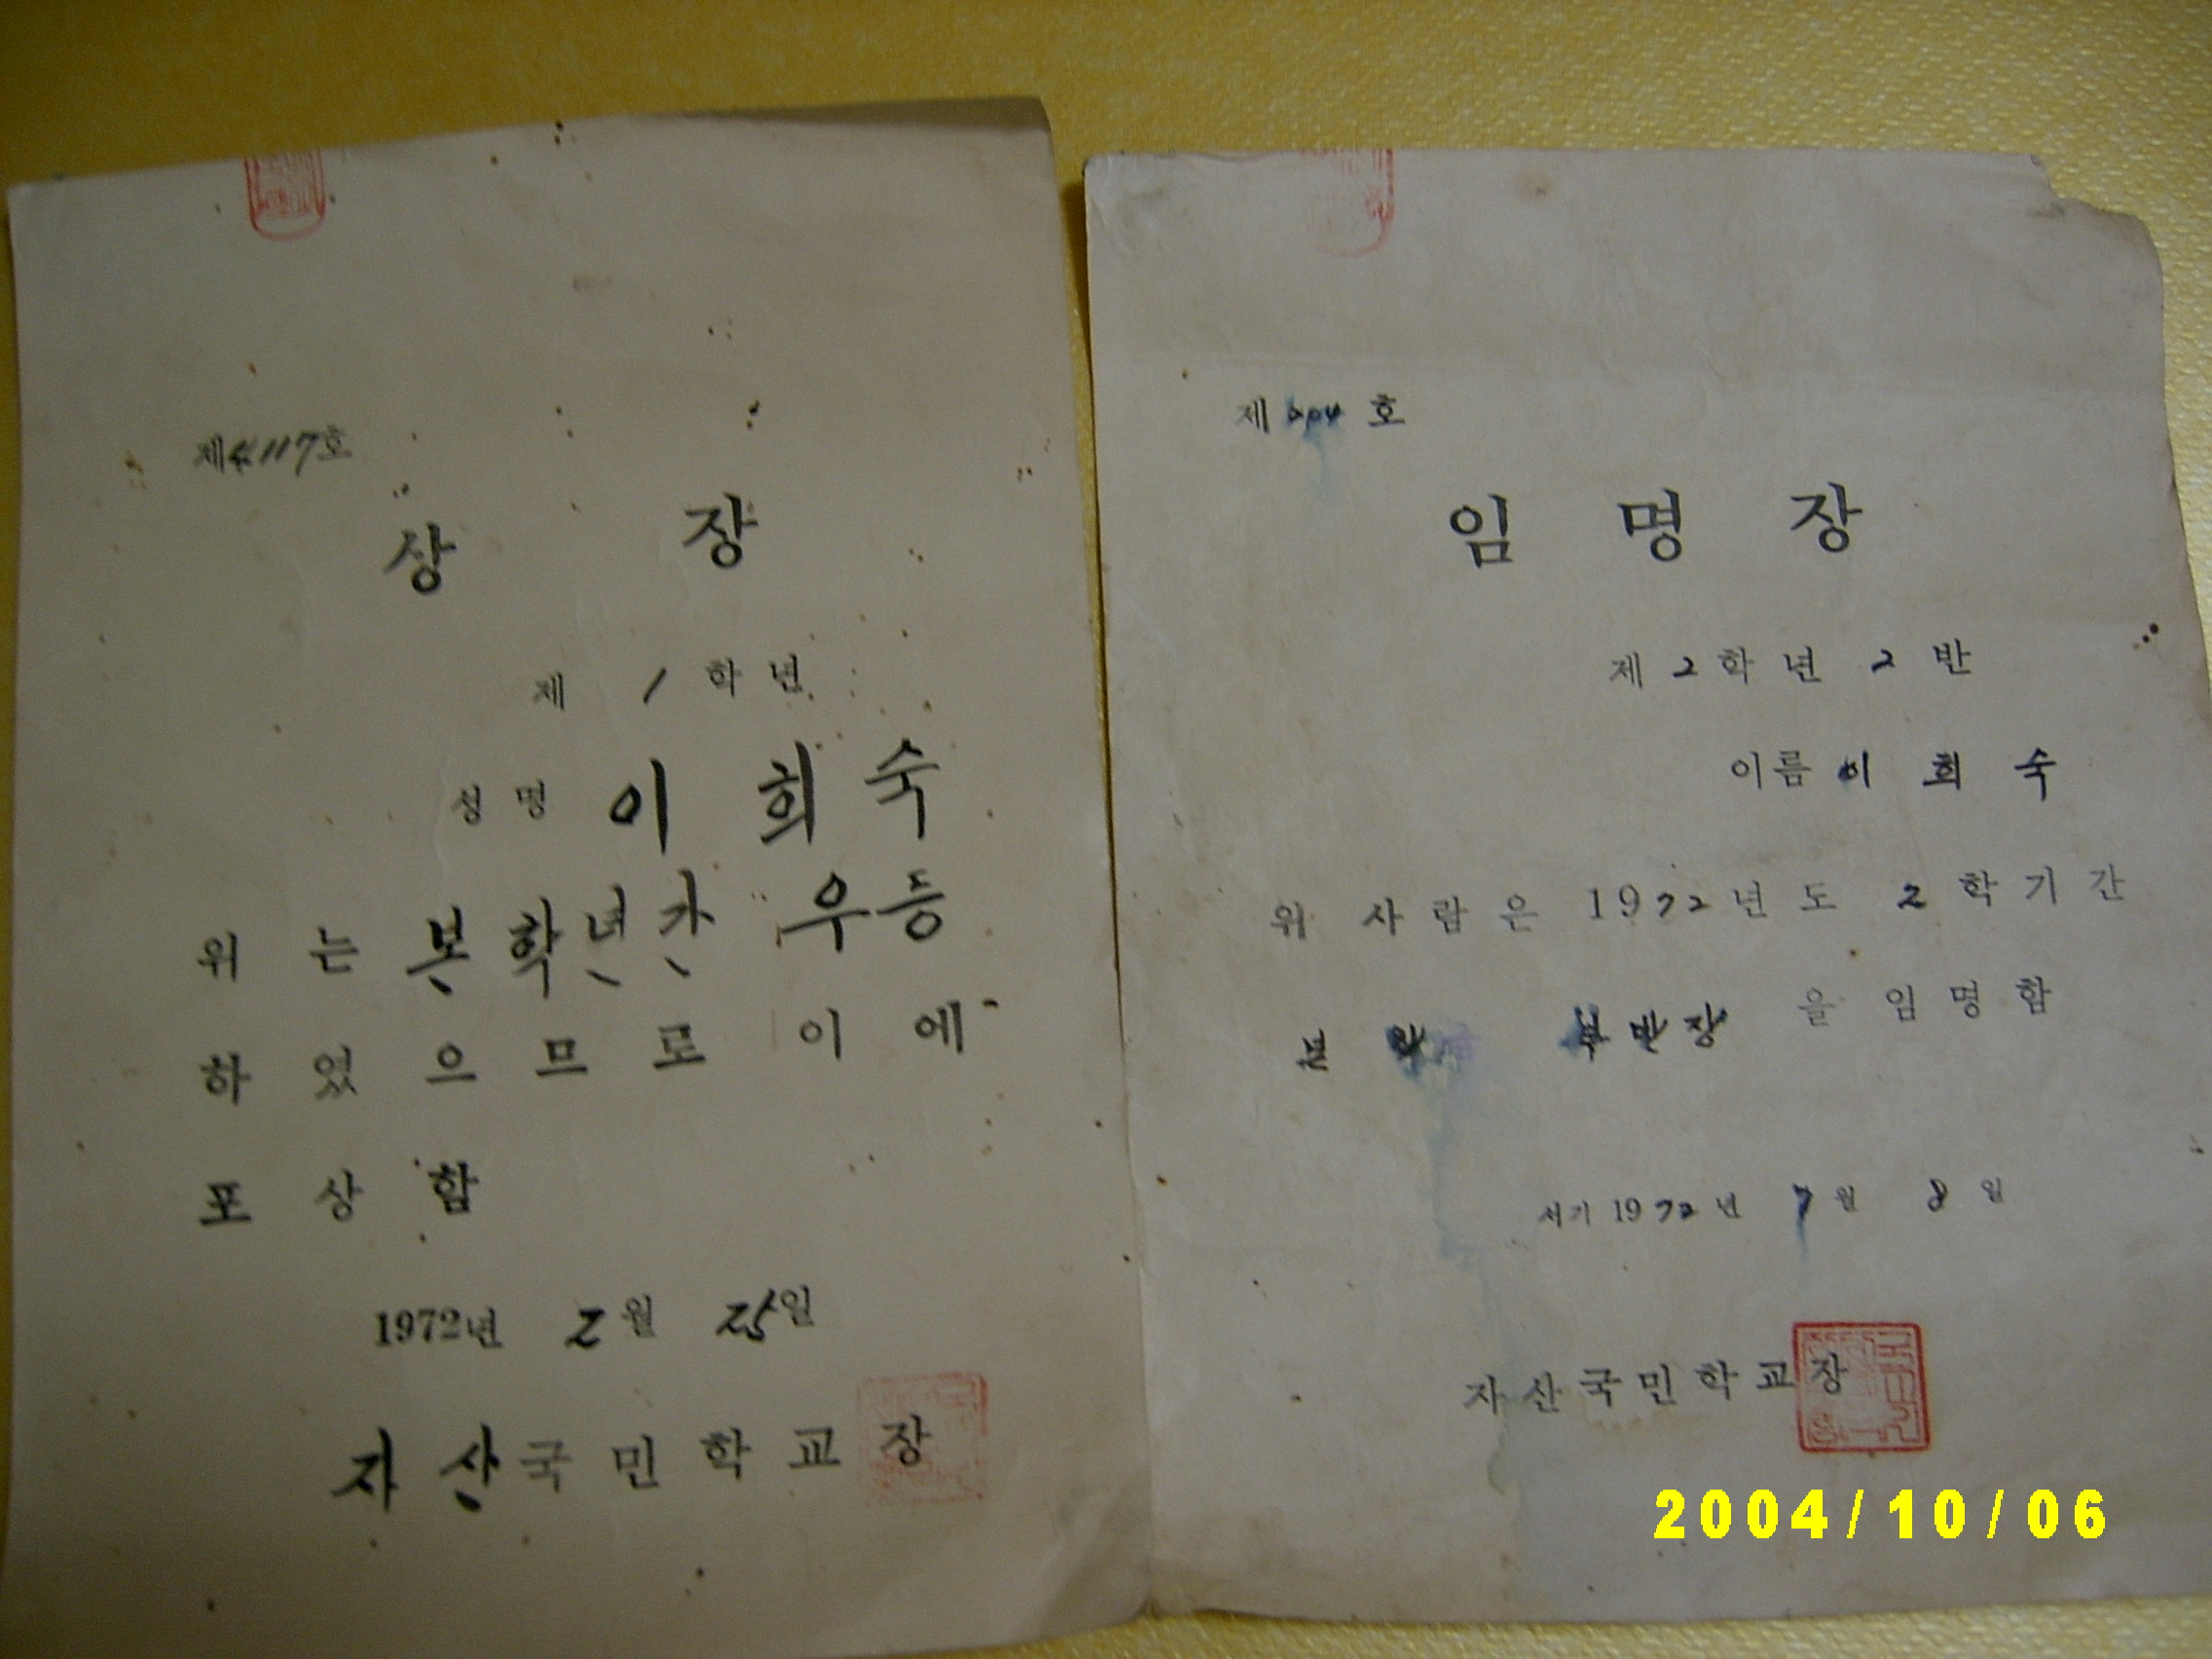 제4117호
상 장
제 1 학년
성명 이 희 숙
위 는 본 학년간 우등
하 였 으 므 로 이 에
포 상 함
1972년 2월 25일
자 산 국 민 학 교 장
제 204 호
임 명 장
제 2 학 년 2 반
이름 이 희 숙
위 사 람 은 1972 년 도 2 학 기 간
부 반 장 을 임 명 함
서기 1972 년 7 월 8 일
자 산 국 민 학 교 장
2004/10/06